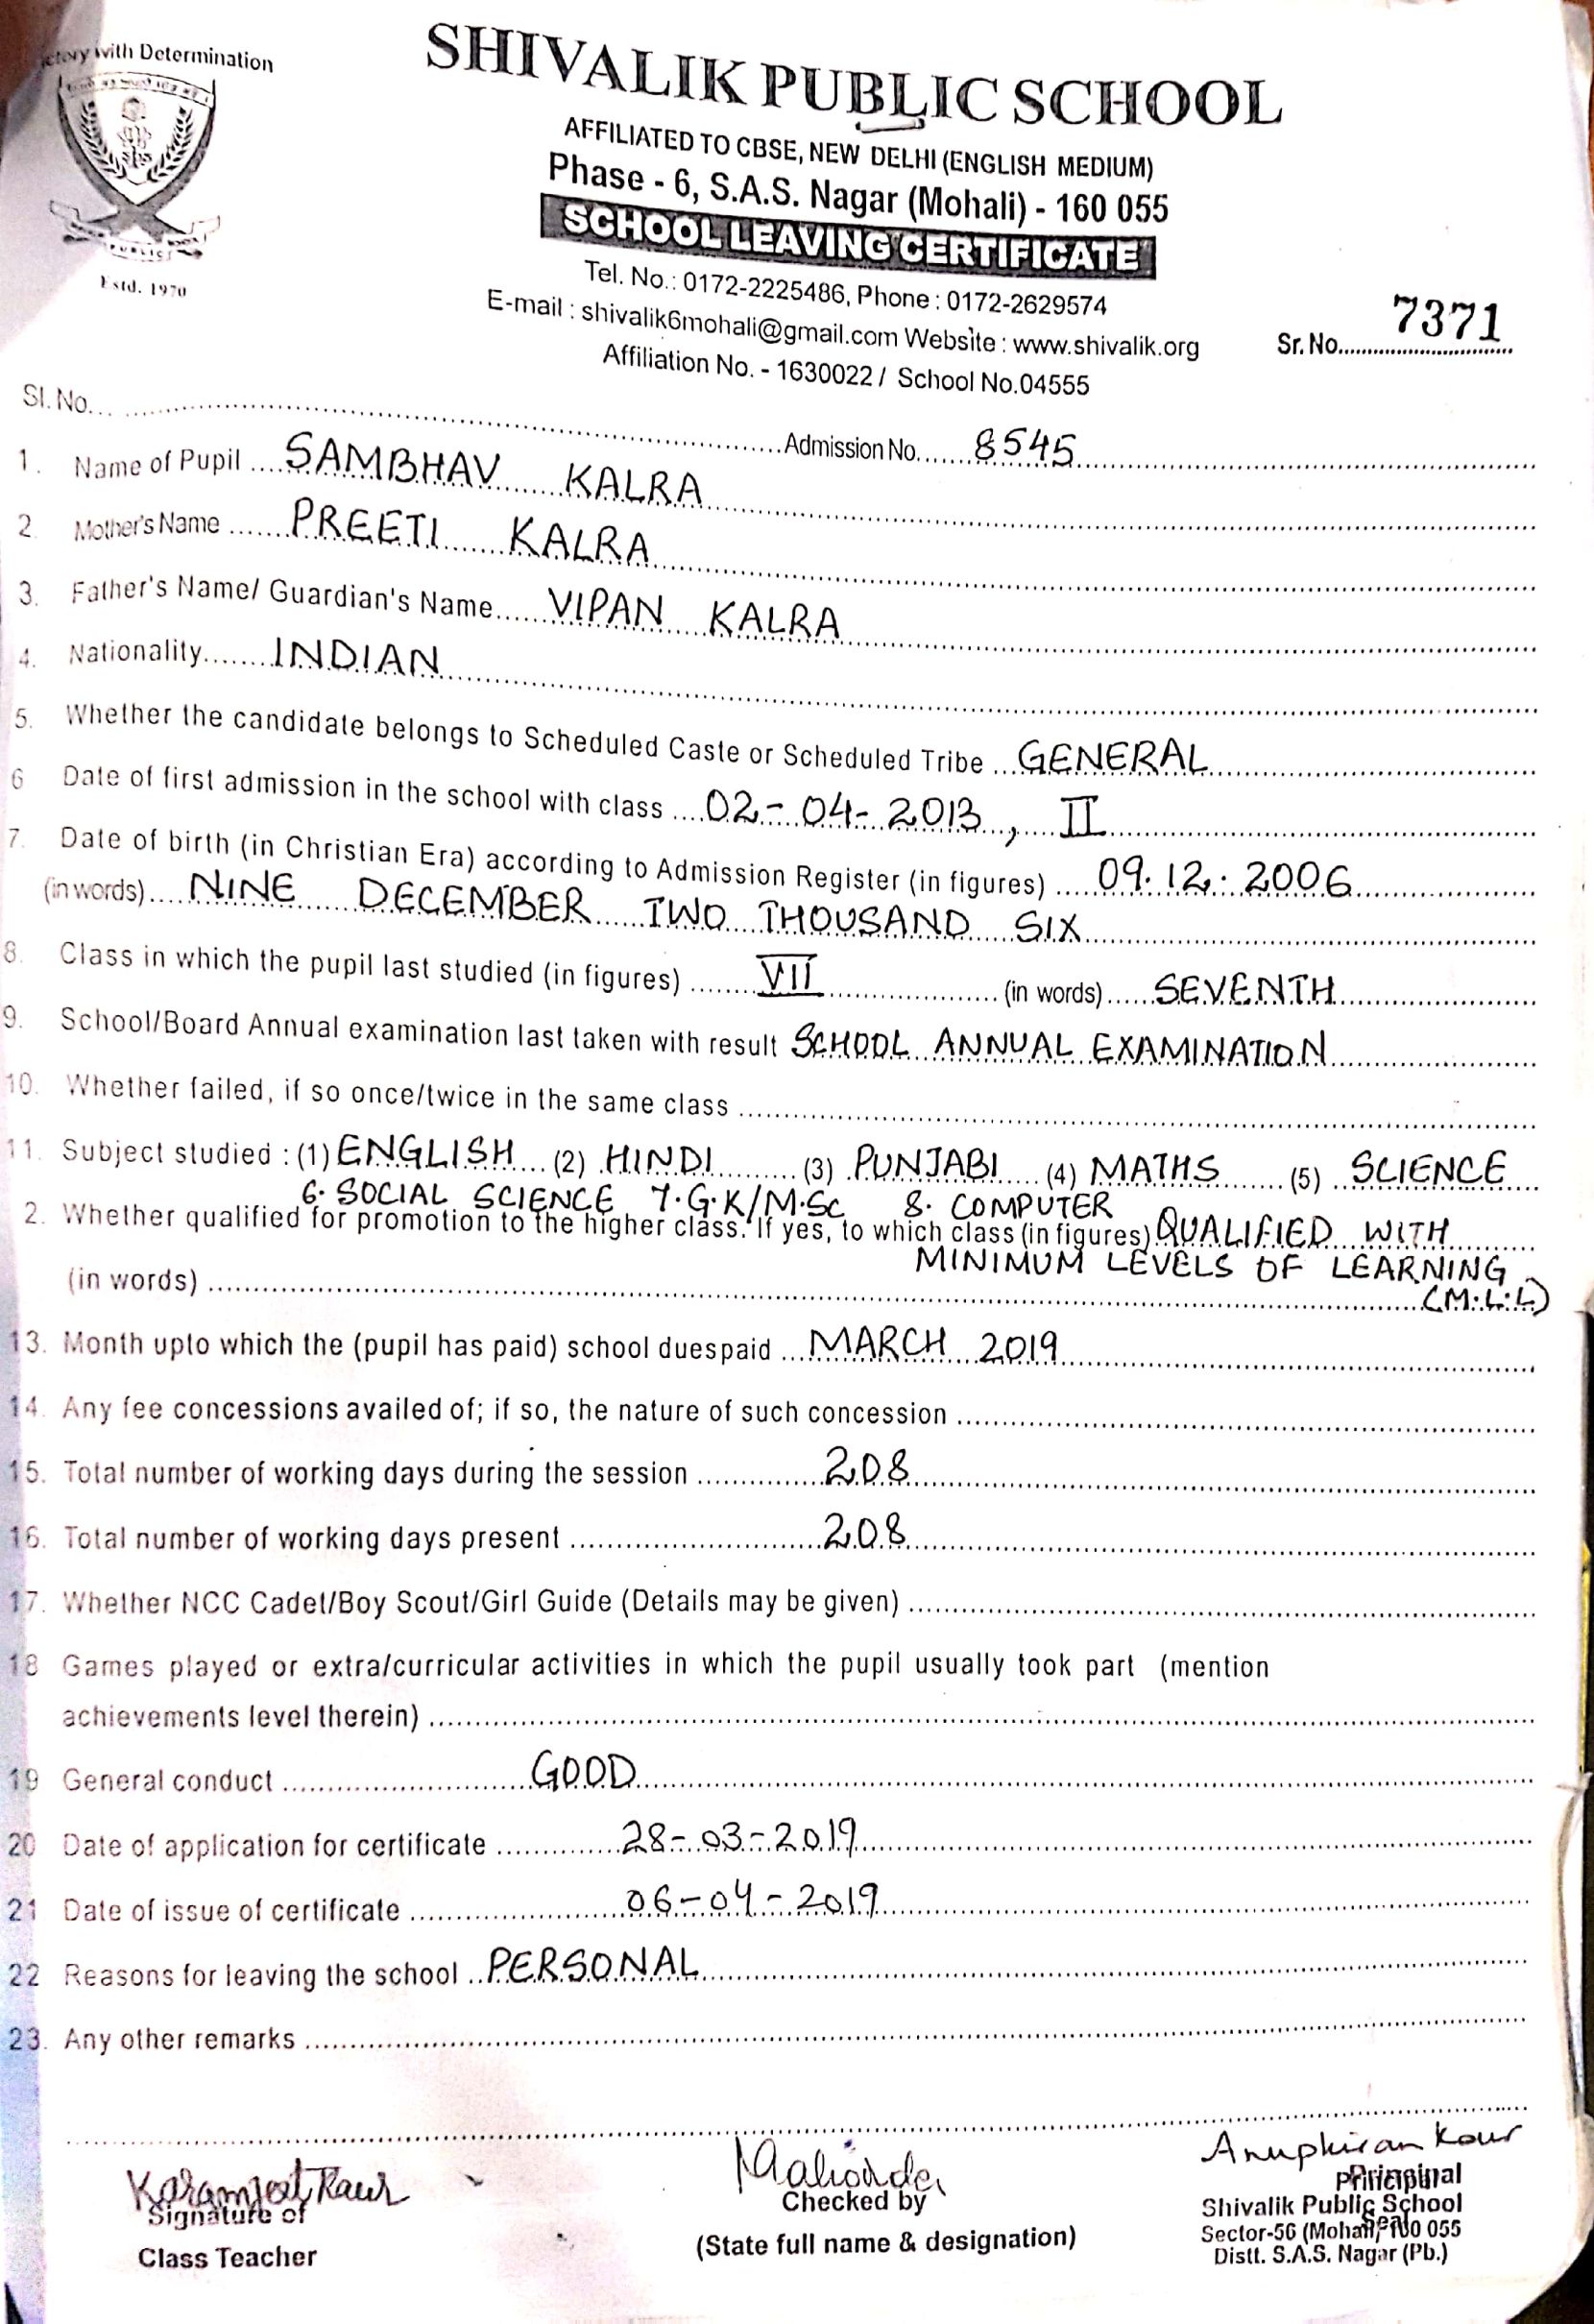 Victory with Determination
Estd. 1970
SHIVALIK PUBLIC SCHOOL
AFFILIATED TO CBSE, NEW DELHI (ENGLISH MEDIUM)
Phase - 6, S.A.S. Nagar (Mohali) - 160 055
SCHOOL LEAVING CERTIFICATE
Tel. No.: 0172-2225486, Phone : 0172-2629574
E-mail : shivalik6mohali@gmail.com Website : www.shivalik.org
Affiliation No. - 1630022 / School No.04555
Sr. No. 7371
Sl. No. Admission No. 8545
1. Name of Pupil SAMBHAV KALRA
2. Mother's Name PREETI KALRA
3. Father's Name/ Guardian's Name VIPAN KALRA
4. Nationality INDIAN
5. Whether the candidate belongs to Scheduled Caste or Scheduled Tribe GENERAL
6 Date of first admission in the school with class 02-04-2013, II
7. Date of birth (in Christian Era) according to Admission Register (in figures) 09.12.2006
(in words) NINE DECEMBER TWO THOUSAND SIX
8. Class in which the pupil last studied (in figures) VII (in words) SEVENTH
9. School/Board Annual examination last taken with result SCHOOL ANNUAL EXAMINATION
10. Whether failed, if so once/twice in the same class
11. Subject studied : (1) ENGLISH (2) HINDI (3) PUNJABI (4) MATHS (5) SCIENCE
6. SOCIAL SCIENCE 7. G.K/M.Sc 8. COMPUTER
2. Whether qualified for promotion to the higher class. If yes, to which class (in figures) QUALIFIED WITH
MINIMUM LEVELS OF LEARNING
(in words) (M.L.L)
13. Month upto which the (pupil has paid) school duespaid MARCH 2019
14. Any fee concessions availed of; if so, the nature of such concession
15. Total number of working days during the session 208
16. Total number of working days present 208
17. Whether NCC Cadet/Boy Scout/Girl Guide (Details may be given)
18 Games played or extra/curricular activities in which the pupil usually took part (mention
achievements level therein)
19 General conduct GOOD
20 Date of application for certificate 28-03-2019
21 Date of issue of certificate 06-04-2019
22 Reasons for leaving the school PERSONAL
23. Any other remarks
Karamjeet Kaur
Signature of
Class Teacher
Checked by
(State full name & designation)
Anupkiran Kaur
Principal
Shivalik Public School
Sector-56 (Mohali)-160 055
Distt. S.A.S. Nagar (Pb.)